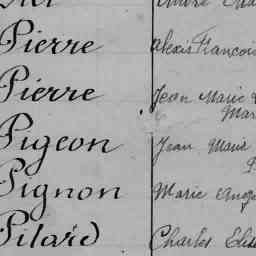 Pierre Alexis François
Pierre Jean Marie
Mar
Pigeon Jean Marie
Pignon Marie Ange
Pilard Charles Elis